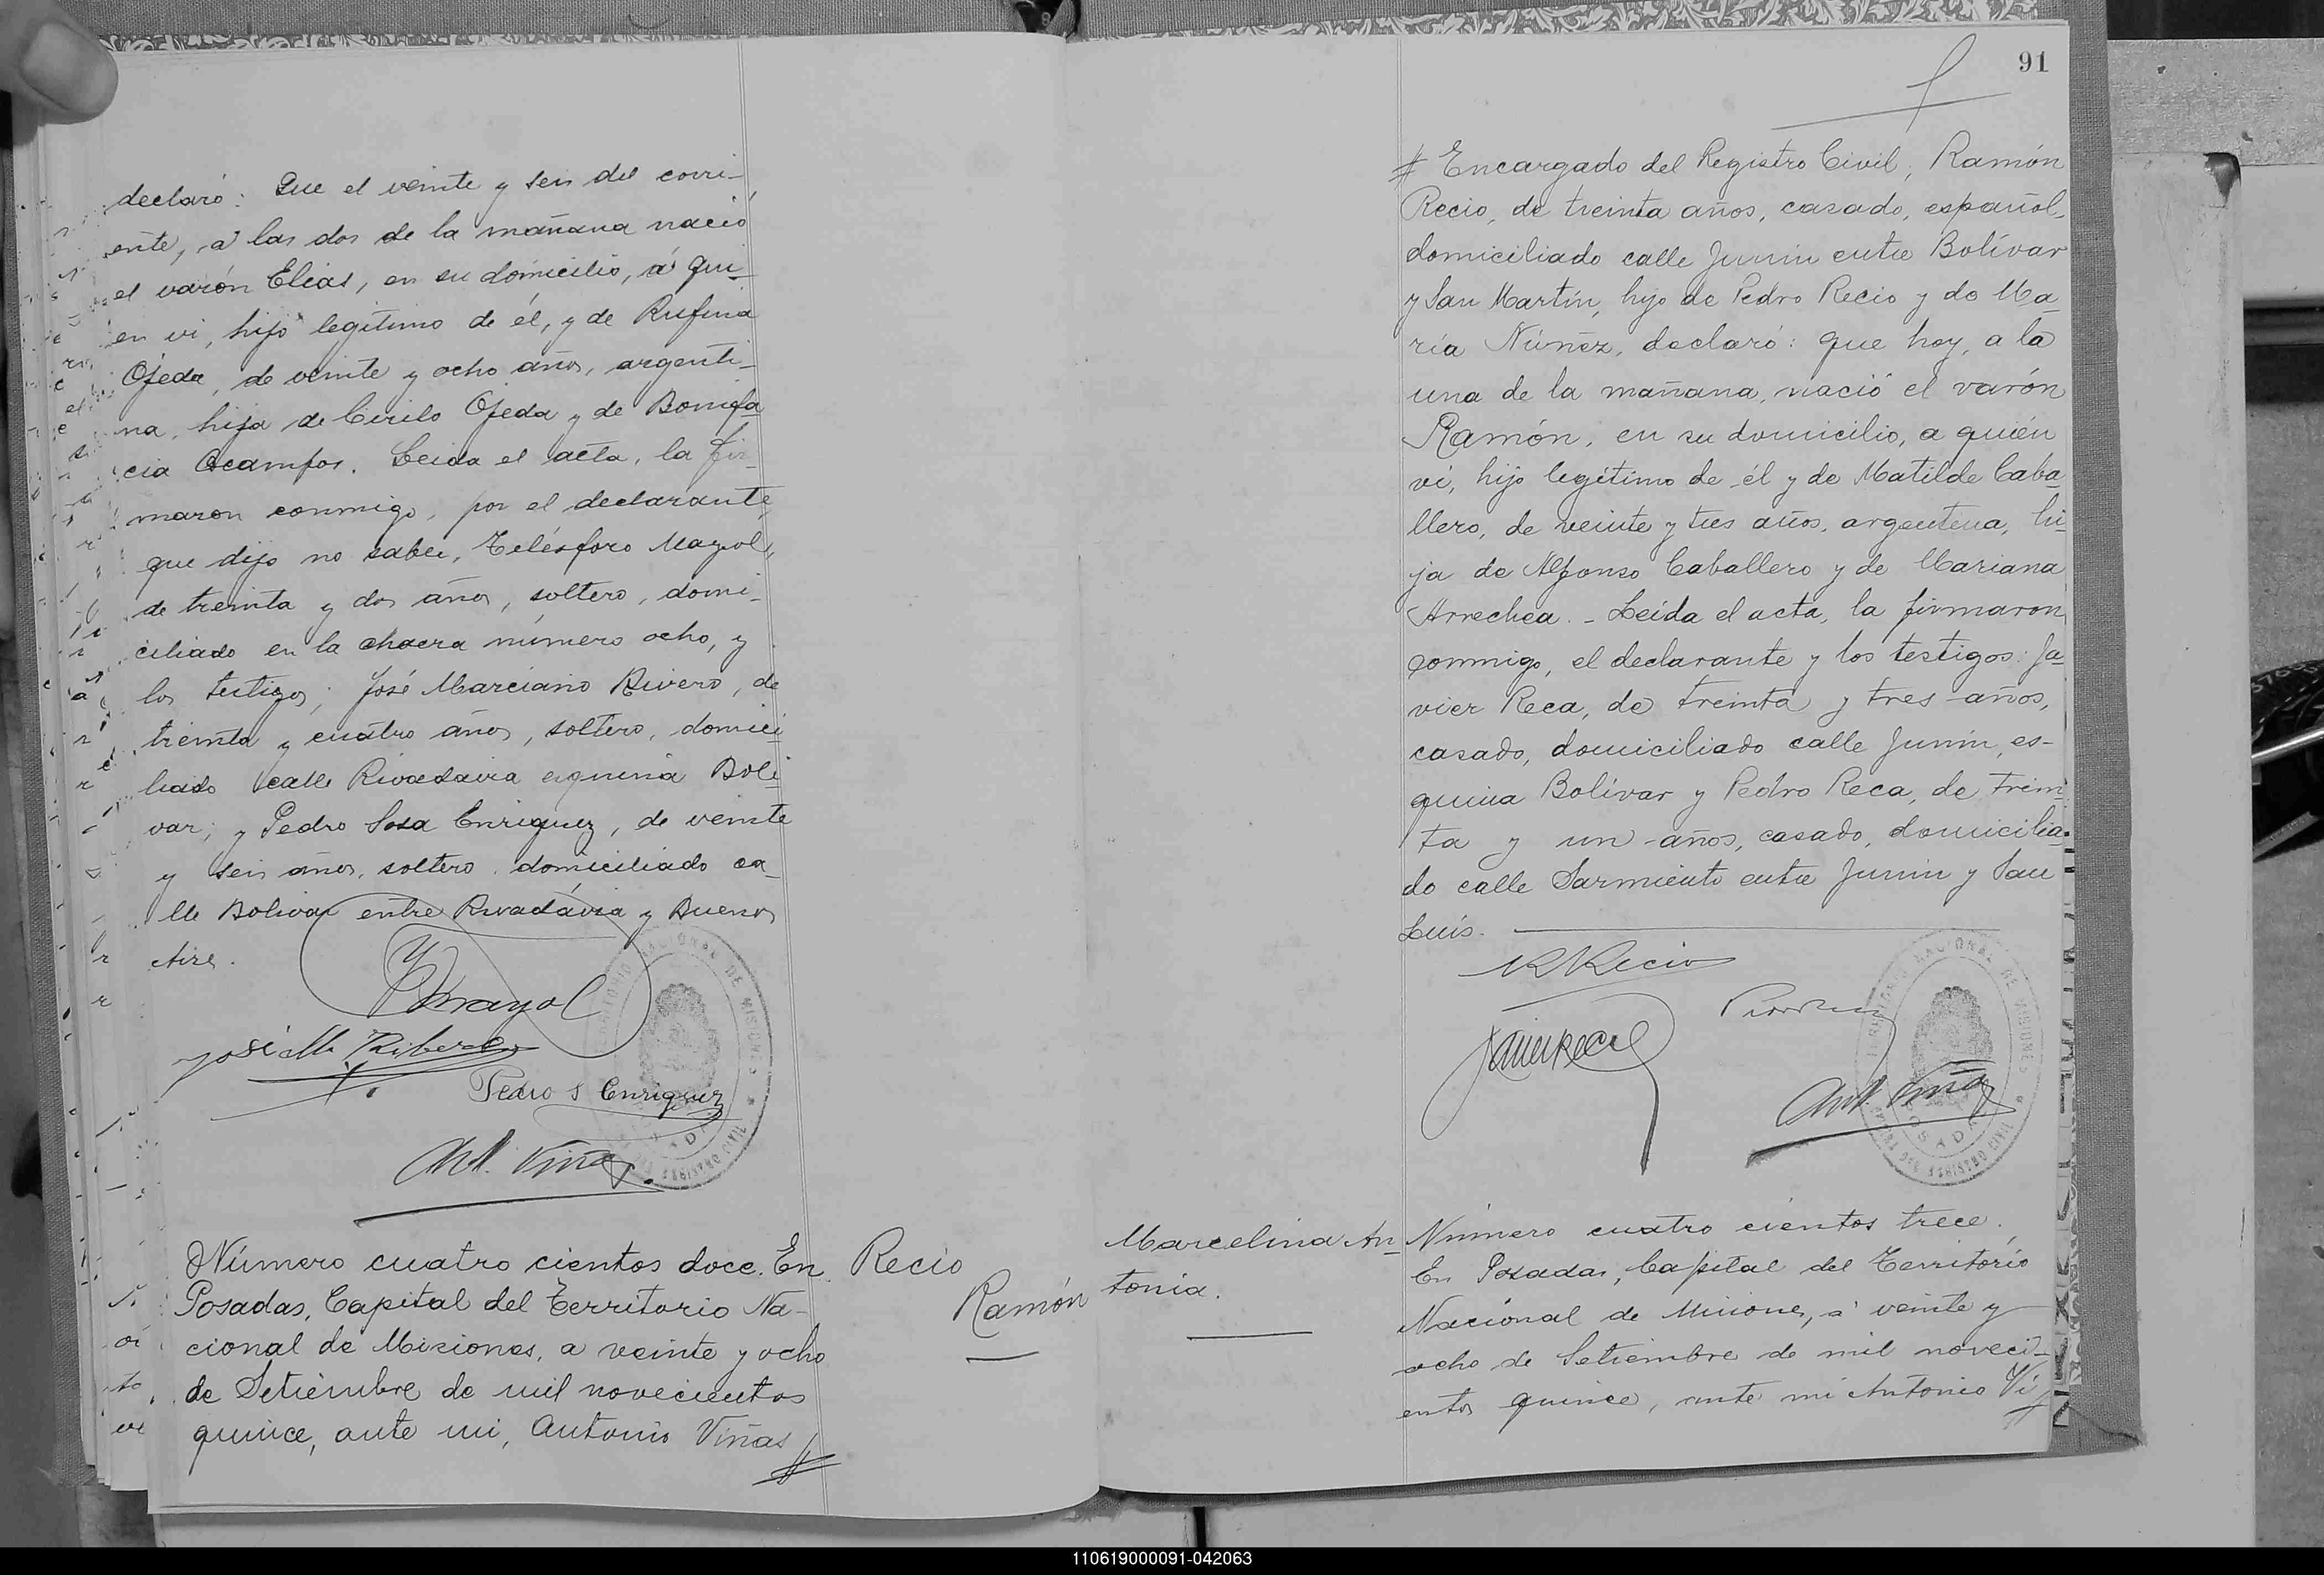 declaró: Que el veinte y seis del corri-
ente, á las dos de la mañana nació
el varón Elias, en su domicilio, á qui-
en vi, hijo legitimo de él, y de Rufina
Ojeda, de veinte y ocho años, argenti-
na, hija de Cirilo Ojeda y de Bonifa-
cia Ocampos. Leida el acta, la fir-
maron conmigo, por el declarante
que dijo no saber, Telésforo Mayol,
de treinta y dos años, soltero, domi-
ciliado en la chacra número ocho, y
los testigos; José Marciano Rivero, de
treinta y cuatro años, soltero, domici-
liado calle Rivadavia esquina Boli-
var; y Pedro Sosa Enriquez, de veinte
y seis años, soltero, domiciliado ca-
lle Bolivar entre Rivadavia y Buenos
Aires.
Mayol
José M Ribero
Pedro S Enriquez
Ant. Viñas
Número cuatro cientos doce. En
Posadas, Capital del Territorio Na-
cional de Misiones, a veinte y ocho
de Setiembre de mil novecientos
quince, ante mi, Antonio Viñas #
Recio
Ramón
91
# Encargado del Registro Civil, Ramón
Recio, de treinta años, casado, español,
domiciliado calle Junin entre Bolívar
y San Martín, hijo de Pedro Recio y de Ma-
ría Núñez, declaró: que hoy, a la
una de la mañana, nació el varón
Ramón, en su domicilio, a quién
ví, hijo legítimo de él y de Matilde Caba
llero, de veinte y tres años, argentina, hi-
ja de Alfonso Caballero y de Mariana
Arrechea. - Leída el acta, la firmaron
conmigo, el declarante y los testigos: Ja-
vier Reca, de treinta y tres años,
casado, domiciliado calle Junín, es-
quina Bolívar y Pedro Reca, de trein
ta y un años, casado, domicilia-
do calle Sarmiento entre Junin y San
Luís.
R Recio
Javier Reca
Ant. Viñas
Marcelina An-
tonia.
Número cuatro cientos trece.
En Posadas, Capital del Territorio
Nacional de Misiones, á veinte y
ocho de Setiembre de mil noveci-
entos quince, ante mi Antonio Vi
110619000091-042063